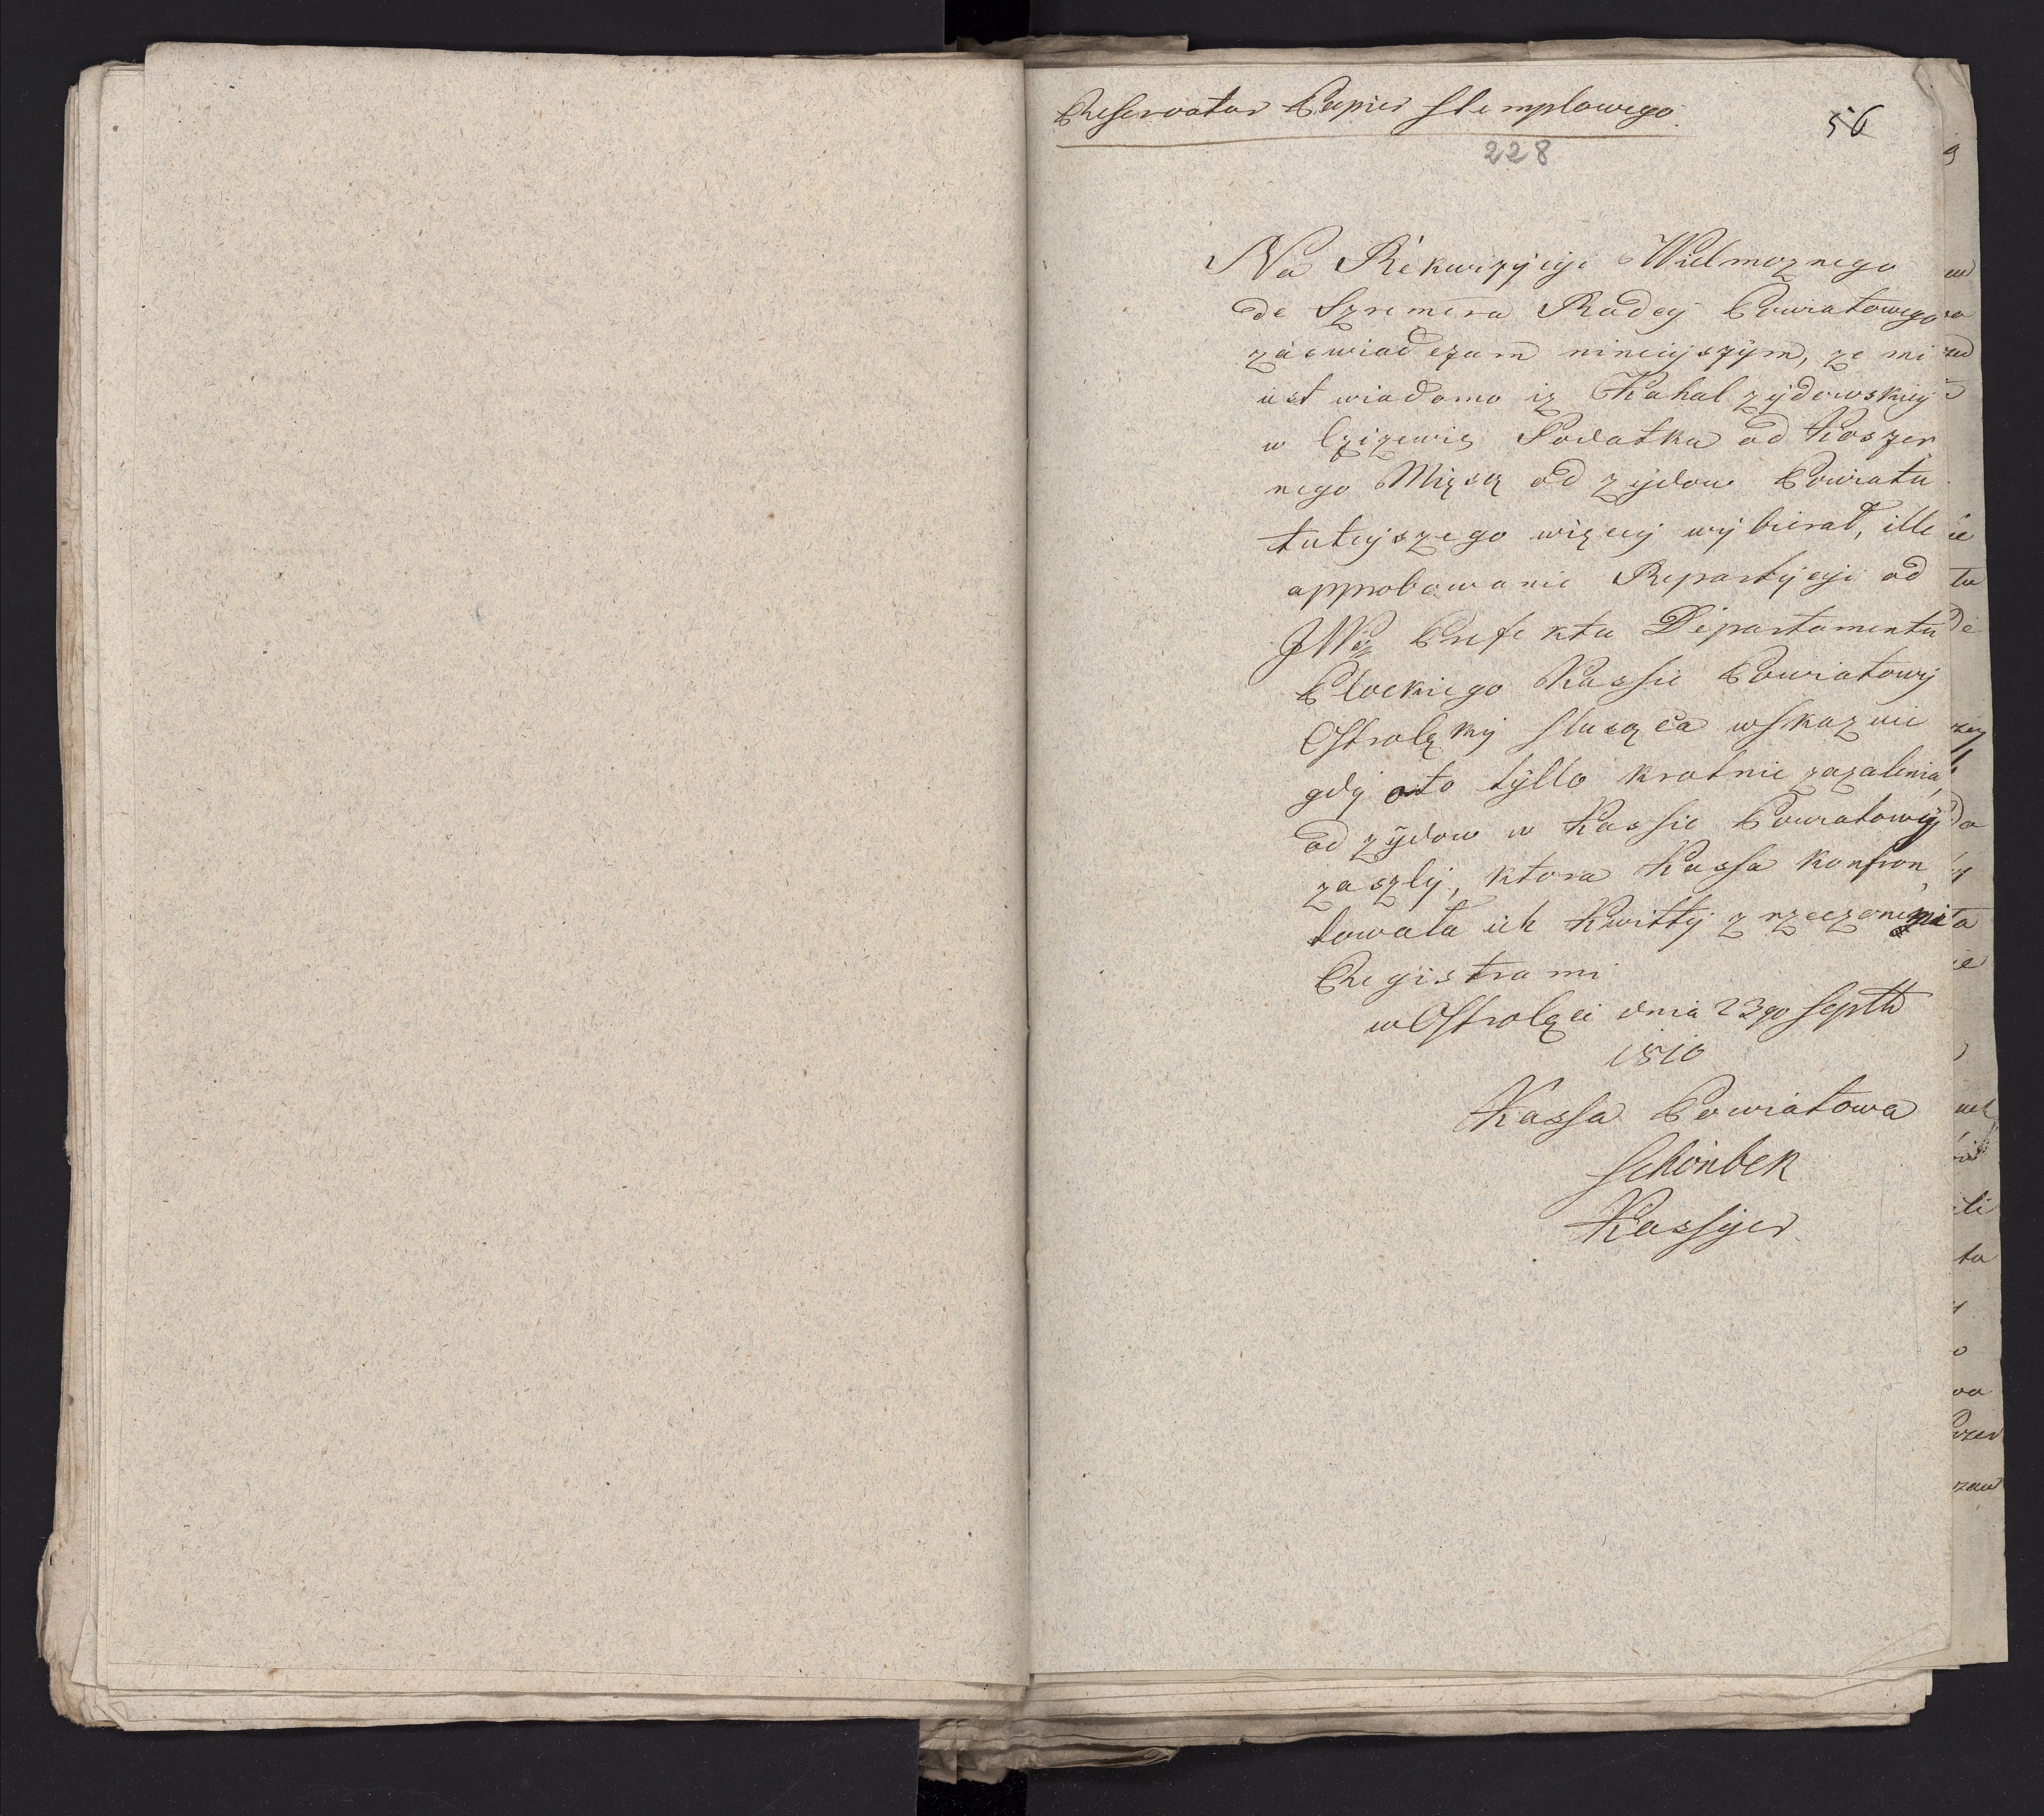 Reservatur Papier stemplowego
56
228
Na Rekwizycyi Wielmoznego
de Szremera Radcy Powiatowego
zaswiadczam nineiyszym, ze mi
iest wiadomo iz Kahal zydowskiey
w Czizewie Podatku od Koszer
nego Mięsą od zydow Powiatu
tuteyszego więcey wybierał, ille
approbowanie Repartycyi od
JWo Prefektu Departamentu
Plockiego Kassie Powiatowy
Ostrolęky slusąca wskazuie
gdy oto tyllo krotnie zazalenia
od zydow w Kassie Powiatowy
zaszly, ktora Kassa konfron
towała ich Kwitty z rzeczonemi
Registrami
w Ostrolęci dnia 23go Septb
1810
Kassa Powiatowa
Schönbek
Kassyer